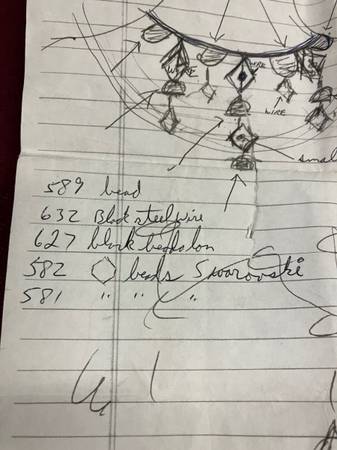 WIRE
WIRE
WIRE
WIRE
small
589 bead
632 Black steel wire
627 black beadalon
582 beads Swarovski
581 " " "